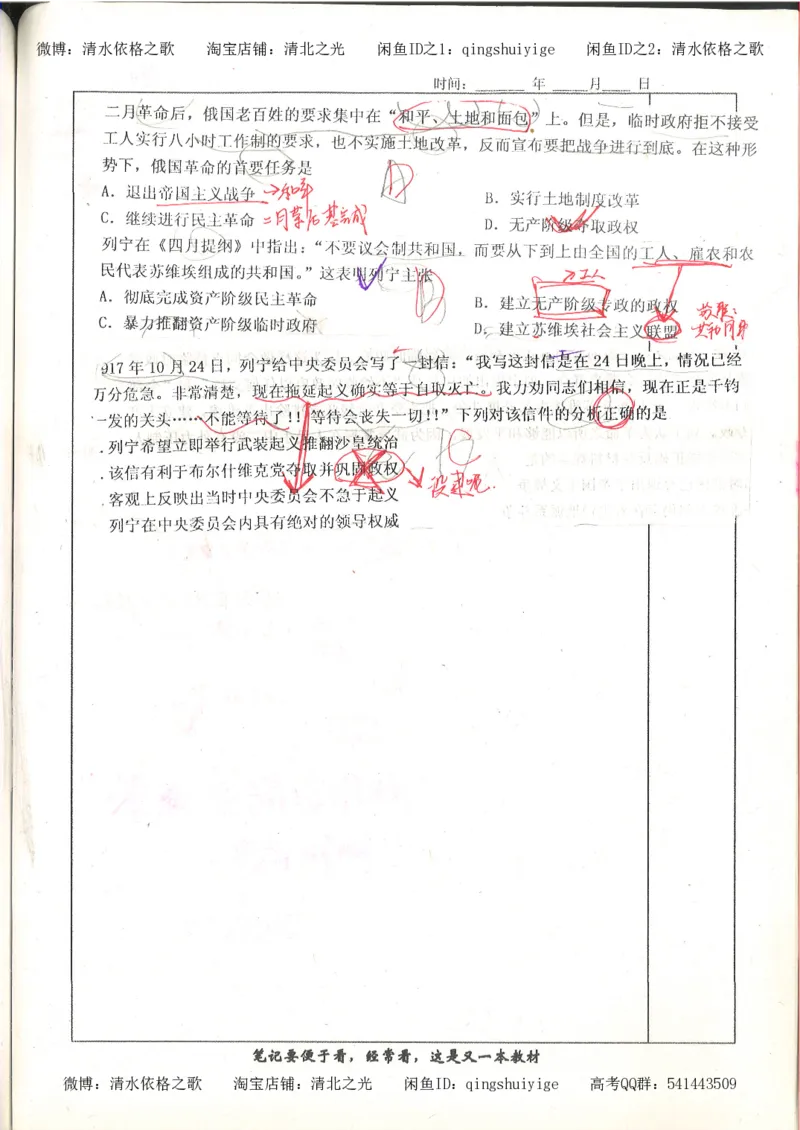 微博：清水依格之歌 淘宝店铺：清北之光 闲鱼ID之1：qingshuiyige 闲鱼ID之2：清水依格之歌
时间：______ 年 _____月____ 日
二月革命后，俄国老百姓的要求集中在“和平、土地和面包”上。但是，临时政府拒不接受
工人实行八小时工作制的要求，也不实施土地改革，反而宣布要把战争进行到底。在这种形
势下，俄国革命的首要任务是
D
A．退出帝国主义战争 →和平
B．实行土地制度改革
C．继续进行民主革命 二月革后基完成
D．无产阶级夺取政权
列宁在《四月提纲》中指出：“不要议会制共和国，而要从下到上由全国的工人、雇农和农
民代表苏维埃组成的共和国。”这表明列宁主张
工人
A．彻底完成资产阶级民主革命
B．建立无产阶级专政的政权
C．暴力推翻资产阶级临时政府
D．建立苏维埃社会主义联盟
917 年 10 月 24 日，列宁给中央委员会写了一封信：“我写这封信是在 24 日晚上，情况已经
万分危急。非常清楚，现在拖延起义确实等于自取灭亡。我力劝同志们相信，现在正是千钧
一发的关头……不能等待了!! 等待会丧失一切!!”下列对该信件的分析正确的是
C
．列宁希望立即举行武装起义推翻沙皇统治
．该信有利于布尔什维克党夺取并巩固政权
没来呢.
．客观上反映出当时中央委员会不急于起义
列宁在中央委员会内具有绝对的领导权威
笔记要便于看，经常看，这是又一本教材
微博：清水依格之歌 淘宝店铺：清北之光 闲鱼ID：qingshuiyige 高考QQ群：541443509